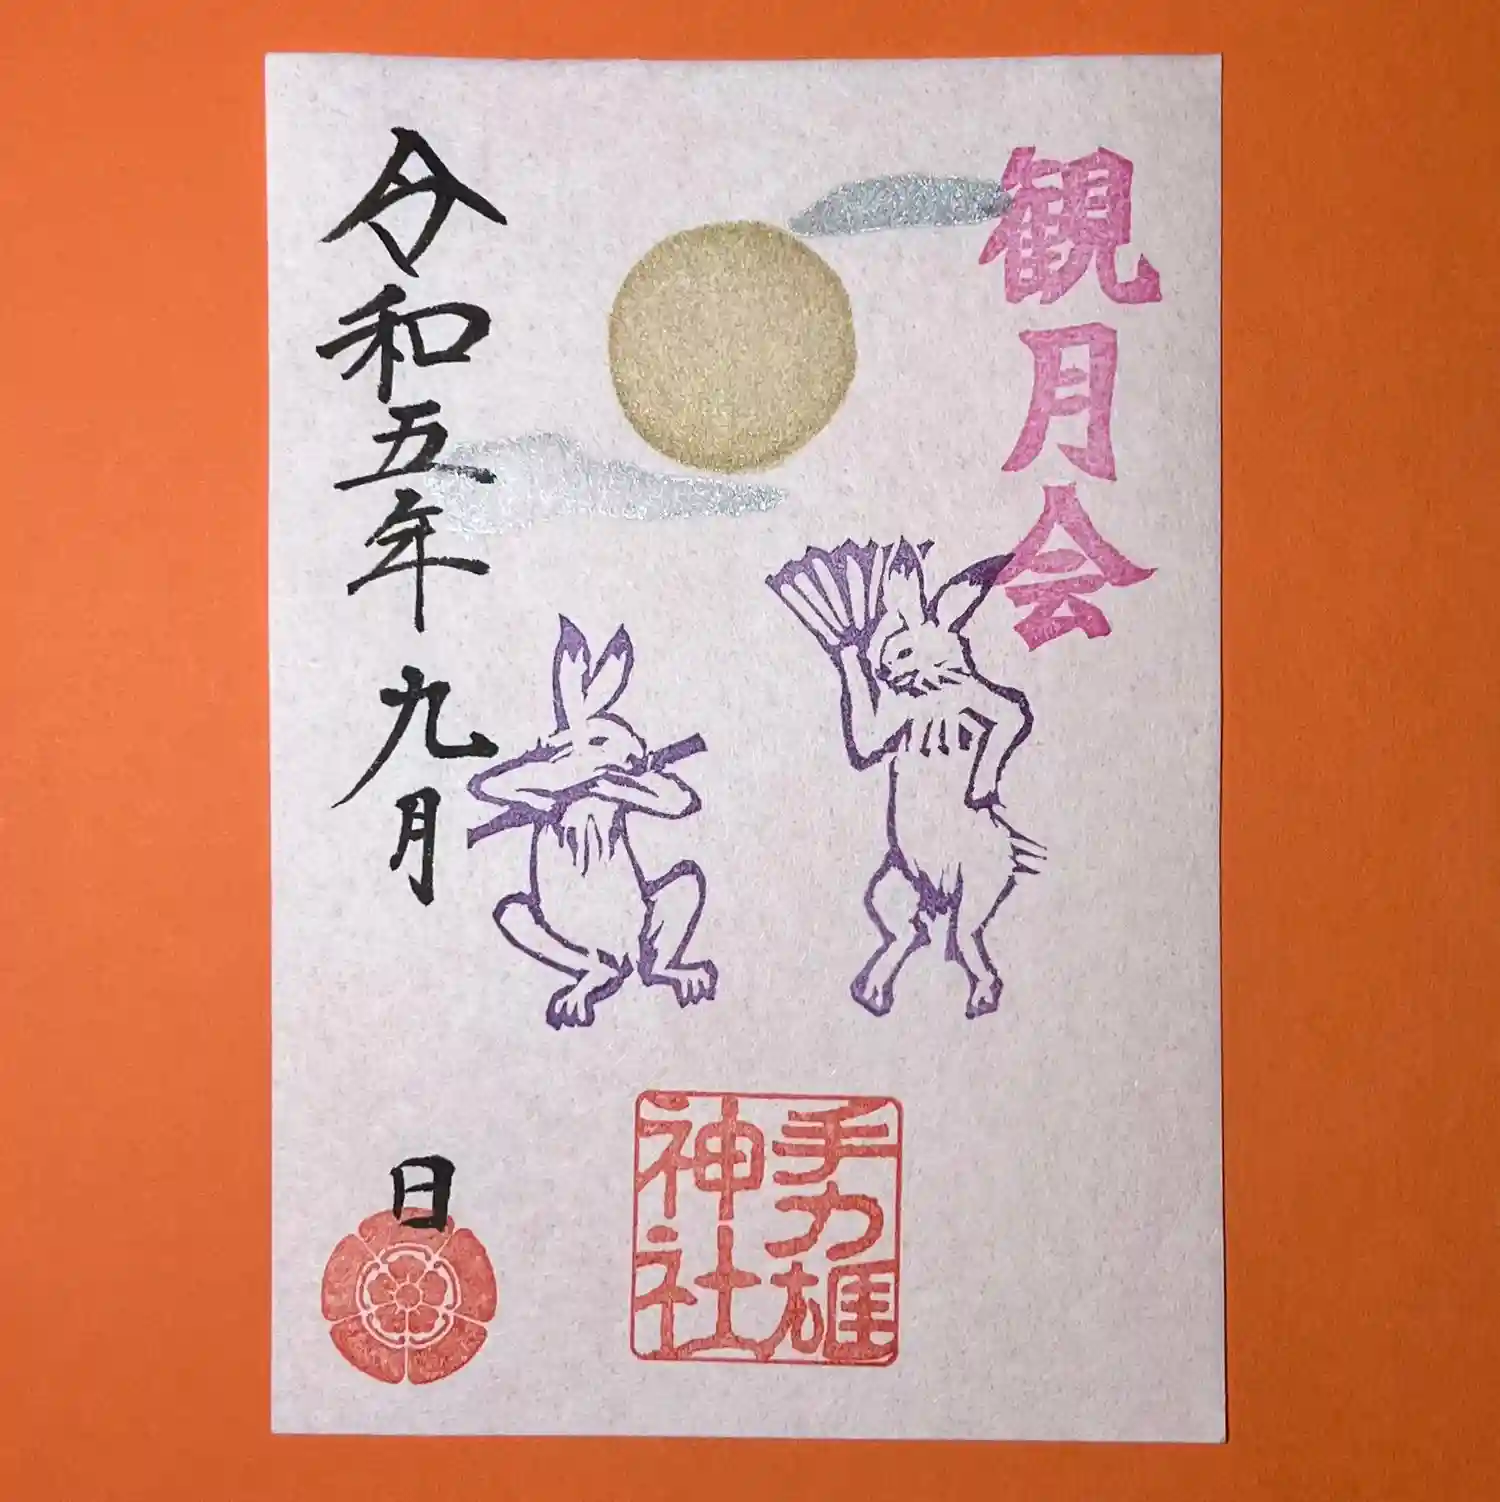 観月会
手力雄
神社
令和五年 九月 日